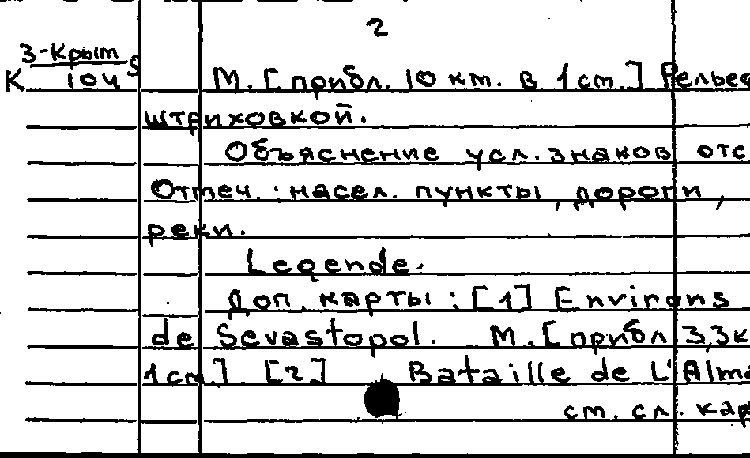 2
3-Крым
К 104 5 М. [прибл. 10 км. в 1 см.] Рельеф
штриховкой.
Объяснение усл. знаков отс
Отмеч.: насел. пункты, дороги,
реки.
Legende.
Доп. карты: [1] Environs
de Sevastopol. М. [прибл 3,3 к
1 см.] [2] Bataille de L'Alma
см. сл. кар